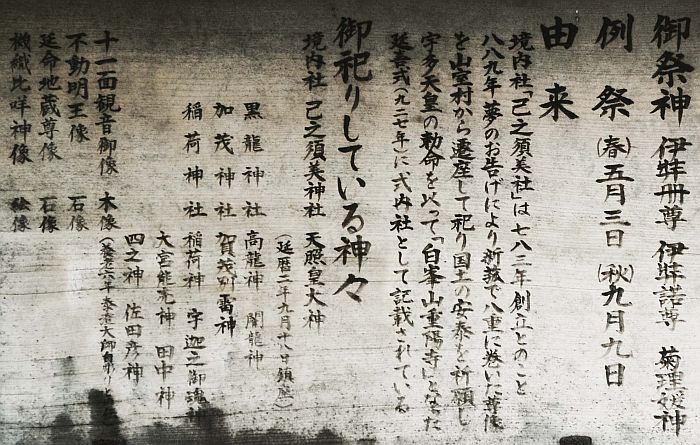 御祭神 伊弉冊尊 伊弉諾尊 菊理媛神
例祭 (春)五月三日 (秋)九月九日
由来
境内社「己之須美社」は七八三年創立とのこと
八八九年夢のお告げにより新薮で八重に巻いた尊像
を山室村から遷座して祀り国土の安泰を祈願し
宇多天皇の勅命を以って「白峯山重陽寺」となった
延喜式(九二七年)に式内社として記載されている
御祀りしている神々
境内社 己之須美神社 天照皇大神
(延暦二年九月十八日鎮座)
黒龍神社 高龗神 闇龗神
加茂神社 賀茂別雷神
稲荷神社 稲荷神 宇迦之御魂神
大宮能売神 田中神
四之神 佐田彦神
十一面観音御像 木像
不動明王像 石像
延命地蔵尊像 石像
機織比咩神像 絵像